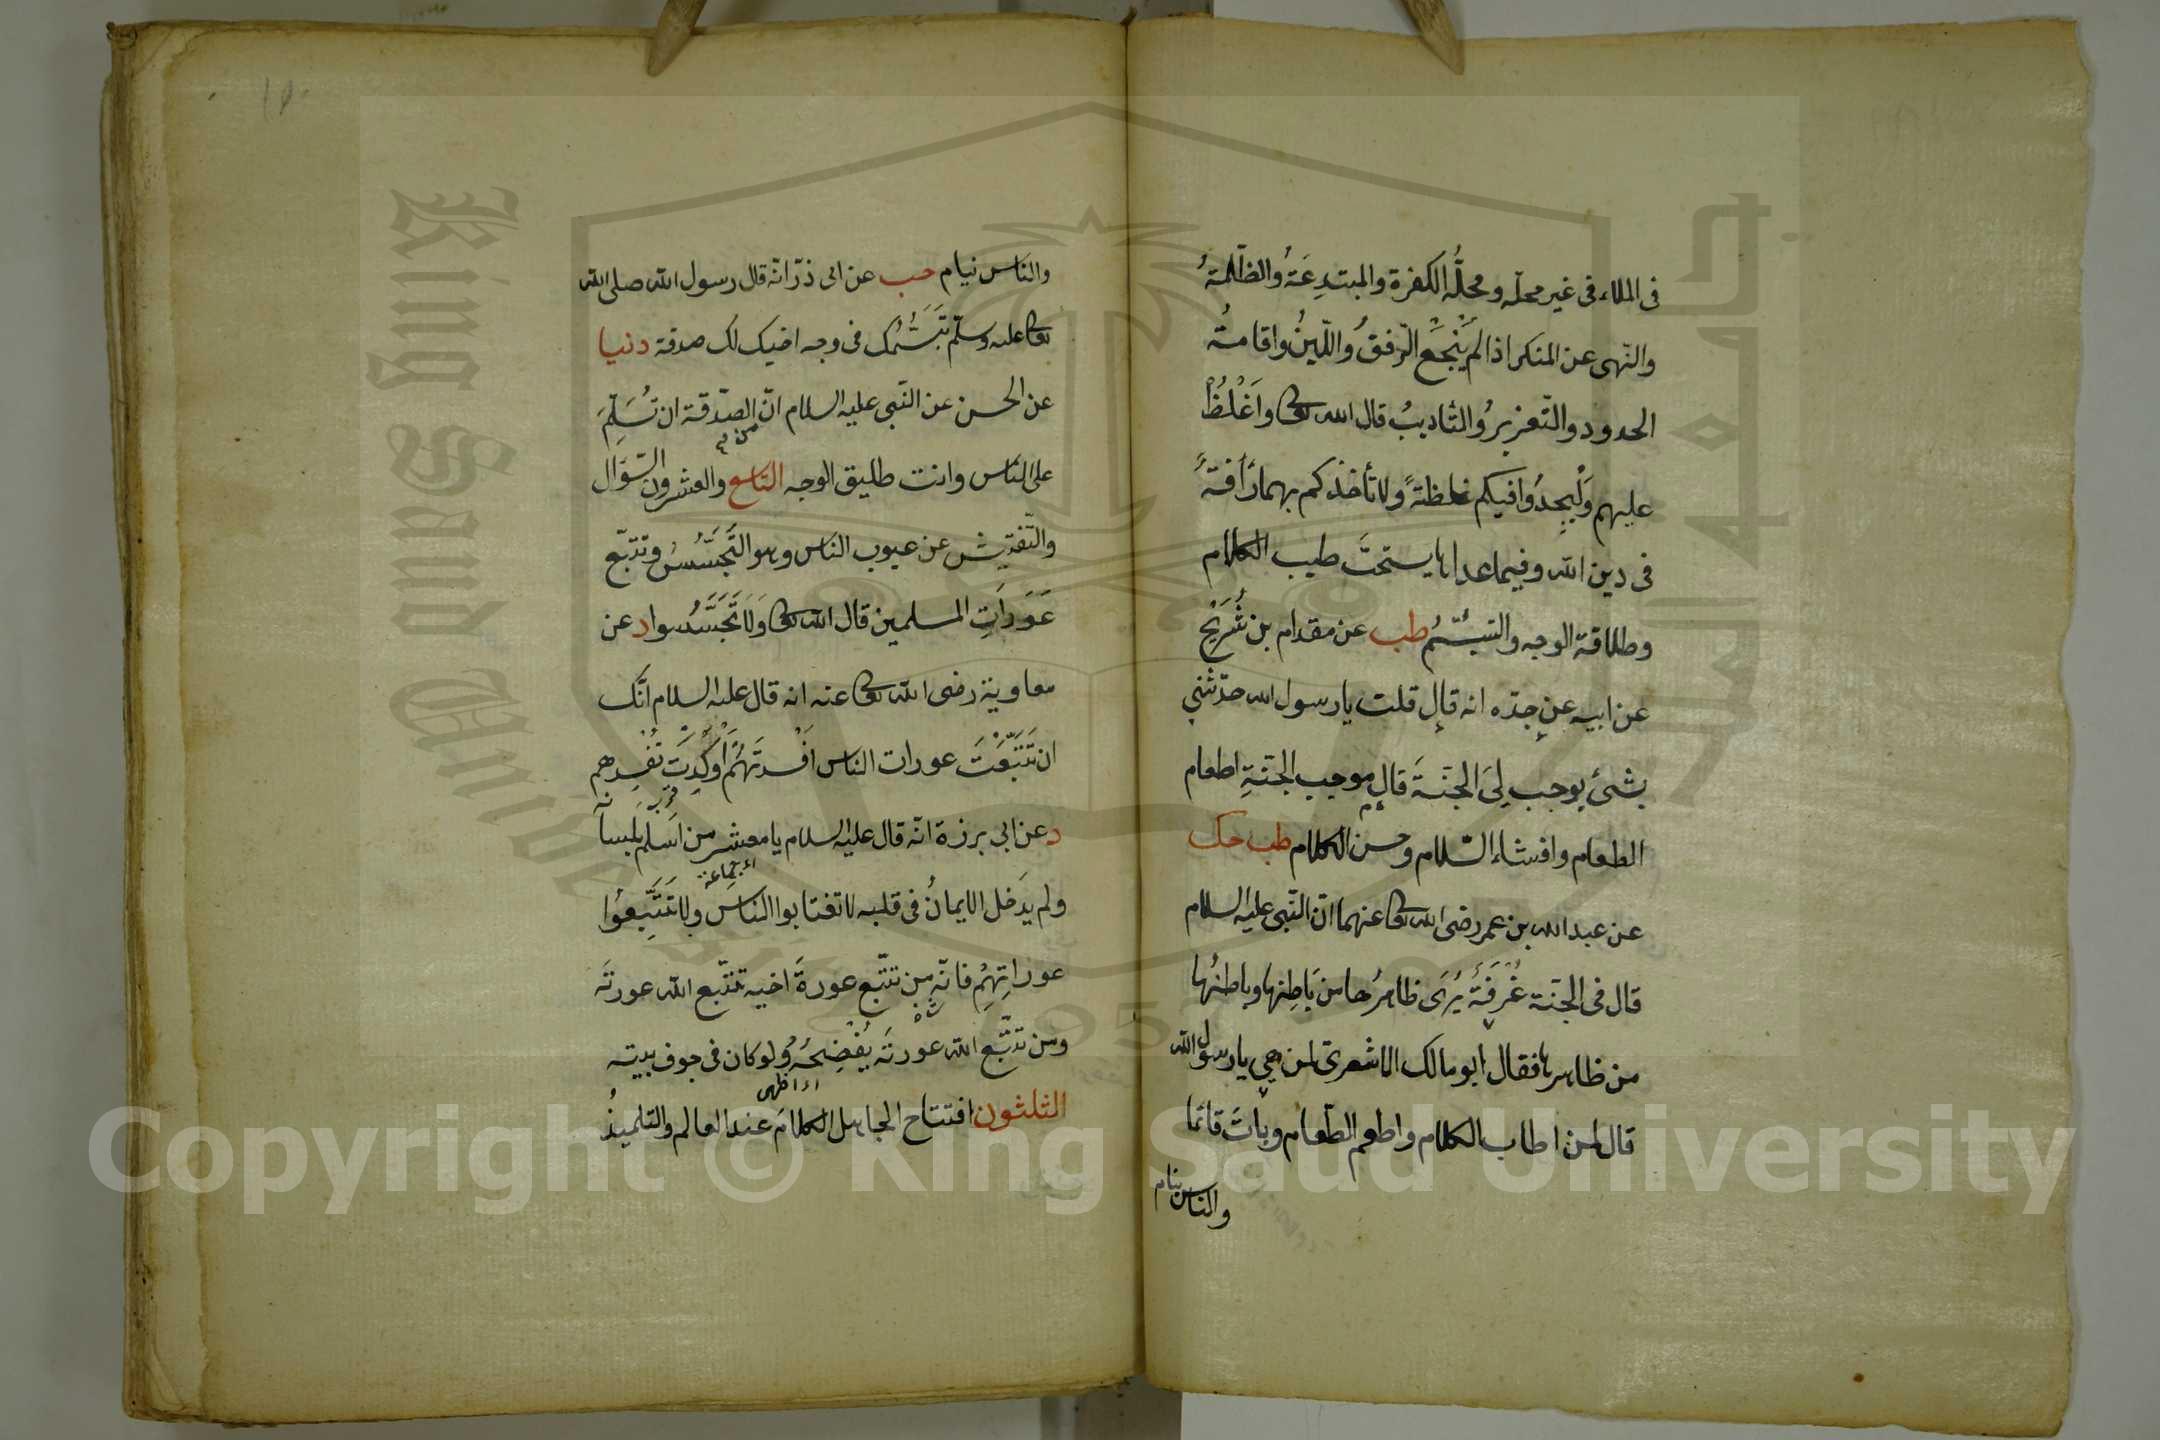 فى الملاء فى غير محلّه ومحلُّه الكفرة والمبتدِعَةُ والظّلَمةُ
والنّهى عن المنكر اذا لم يَنجَعِ الرّفقُ واللّينُ واقامةُ
الحدود والتّعزيرُ والتأديبُ قال الله تعالى وَاغْلُظْ
عليهم وَلْيجِدُوا فيكم غلظةً ولا تأخذكم بهما رَأفةٌ
فى دين الله وفيما عداها يستحبّ طيب الكلام
وطلاقة الوجه والتبسُّمُ طب عن مقدام بن شُرَيْح
عن ابيه عن جدّه انه قال قلت يا رسول الله حدّثنى
بشئ يوجب لِىَ الجنةَ قال موجب الجنّةِ اطعام
الطعام وافشاء السّلام وحسن الكلام طب حك
عن عبد الله بن عمر رضى الله تعالى عنهما انّ النّبى عليه السلام
قال فى الجنّة غُرفَةٌ يُرَى ظاهرُها من بَاطِنها وباطنُها
من ظاهرها فقال ابو مالك الاشعرى لمن هى يا رسول الله
قال لمن اطاب الكلام واطعم الطّعام وباتَ قائما
والناس نيام
والناس نيام حب عن ابى ذرّ انّه قال رسول الله صلى الله
تعالى عليه وسلّم تَبَسُّمُك فى وجه اخيك لك صدقة دنيا
عن الحسن عن النّبى عليه السلام انّ من الصّدقة ان تُسَلِّمَ
على النّاس وانت طليق الوجه التّاسع والعشرون السّؤال
والتّفتيش عن عيوب الناس وهو التَّجَسُّسُ وتتبّع
عَوَرَاتِ المسلمين قال الله تعالى وَلَا تَجَسَّسُوا د عن
معاوية رضى الله تعالى عنه انه قال عليه السلام انّك
ان تَتَبَّعْتَ عورات الناس اَفْسَدتَهُمْ اَوْ كِدْتَ تُفْسِدهم
د عن ابى برزة انّه قال عليه السلام يا معشر من اَسلم بلسانه
ولم يَدخل الايمانُ فى قلبه لا تغتابوا الناسَ ولا تَتَبَّعُوا
عوراتِهِمْ فانّه من تتبّع عورةَ اخيه تتبّع الله عورتَه
ومن تتبّع الله عورتَه يُفْضِحْهُ ولو كان فى جوف بيته
الثلثون افتتاح الجاهل الكلامَ عند العالم والتلميذُ